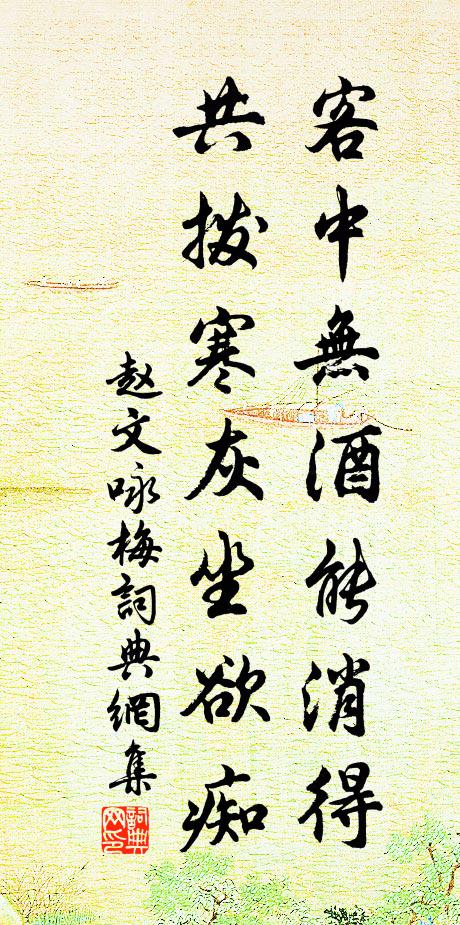 客中無酒能消得
共撥寒灰坐欲痴
赵文咏梅詞典網集
詞典
网印